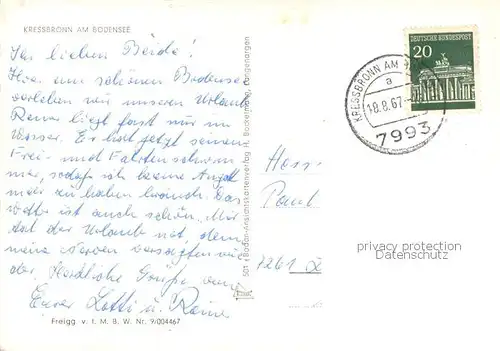 KRESSBRONN AM BODENSEE
Ihr lieben Beide!
Hier am schönen Bodensee
verleben wir unseren Urlaub.
Reiner liegt fast nur im
Wasser. Er hat jetzt seinen
Frei- und Fahrtenschwim-
mer, sodaß ich keine Angst
mehr zu haben brauch. Das
Wetter ist auch schön. Mir
tat der Urlaub not, denn
meine Nerven versagten wie-
der. Herzliche Grüße von
Eurer Lotti u. Reiner
Freigg v. I. M. B. W. Nr. 9/004467
Bodan-Ansichtskartenverlag H. Bockelmann, Langenargen
DEUTSCHE BUNDESPOST
20
KRESSBRONN AM
a
18.8.67
7993
Paul
7261
privacy protection
Datenschutz